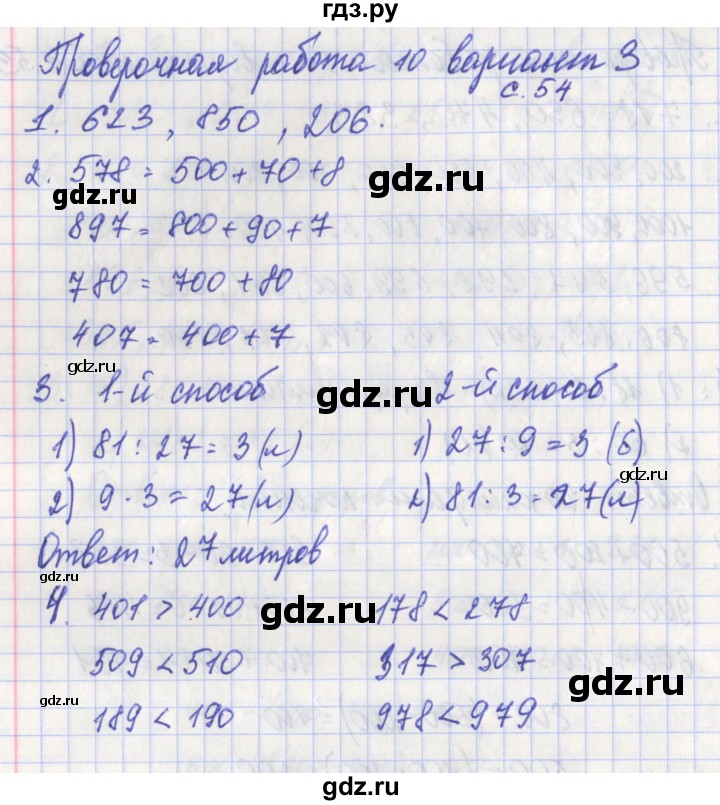 гдз.ру
Проверочная работа 10 вариант 3
с. 54
1. 623, 850, 206.
2. 578 = 500 + 70 + 8
gdz.ru
gdz.ru
897 = 800 + 90 + 7
780 = 700 + 80
407 = 400 + 7
gdz.ru
3. 1-й способ 2-й способ
gdz.ru
1) 81 : 27 = 3 (л) 1) 27 : 9 = 3 (б)
gdz.ru
2) 9 · 3 = 27 (л) 2) 81 : 3 = 27 (л)
Ответ: 27 литров
gdz.ru
4. 401 > 400 178 < 278
gdz.ru
509 < 510 317 > 307
gdz.ru
gdz.ru
189 < 190 978 < 979
gdz.ru